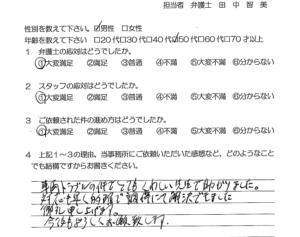 担当者 弁護士 田中智美
性別を教えて下さい。 ☑男性 □女性
年齢を教えて下さい □20代□30代□40代☑50代□60代□70才以上
1 弁護士の応対はどうでしたか。
①大変満足 ②満足 ③普通 ④不満 ⑤大変不満 ⑥分からない
2 スタッフの応対はどうでしたか。
①大変満足 ②満足 ③普通 ④不満 ⑤大変不満 ⑥分からない
3 ご依頼された件の進め方はどうでしたか。
①大変満足 ②満足 ③普通 ④不満 ⑤大変不満 ⑥分からない
4 上記1～3の理由、当事務所にご依頼いただいた感想など、どのようなこと
でも結構ですからお書きください。
車両トラブルの件でとてもくわしい先生で助かりました。
対応も早く的確で納得いく解決できました
御礼申し上げます。
今後もよろしくお願い致します。